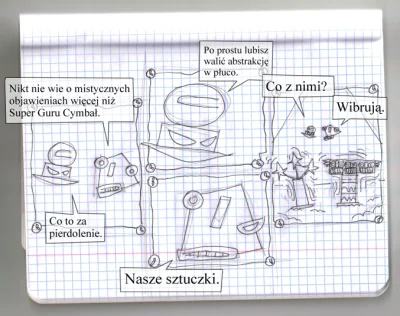 Nikt nie wie o mistycznych
objawieniach więcej niż
Super Guru Cymbał.
Co to za
pierdolenie.
Po prostu lubisz
walić abstrakcję
w płuco.
Nasze sztuczki.
Co z nimi?
Wibrują.